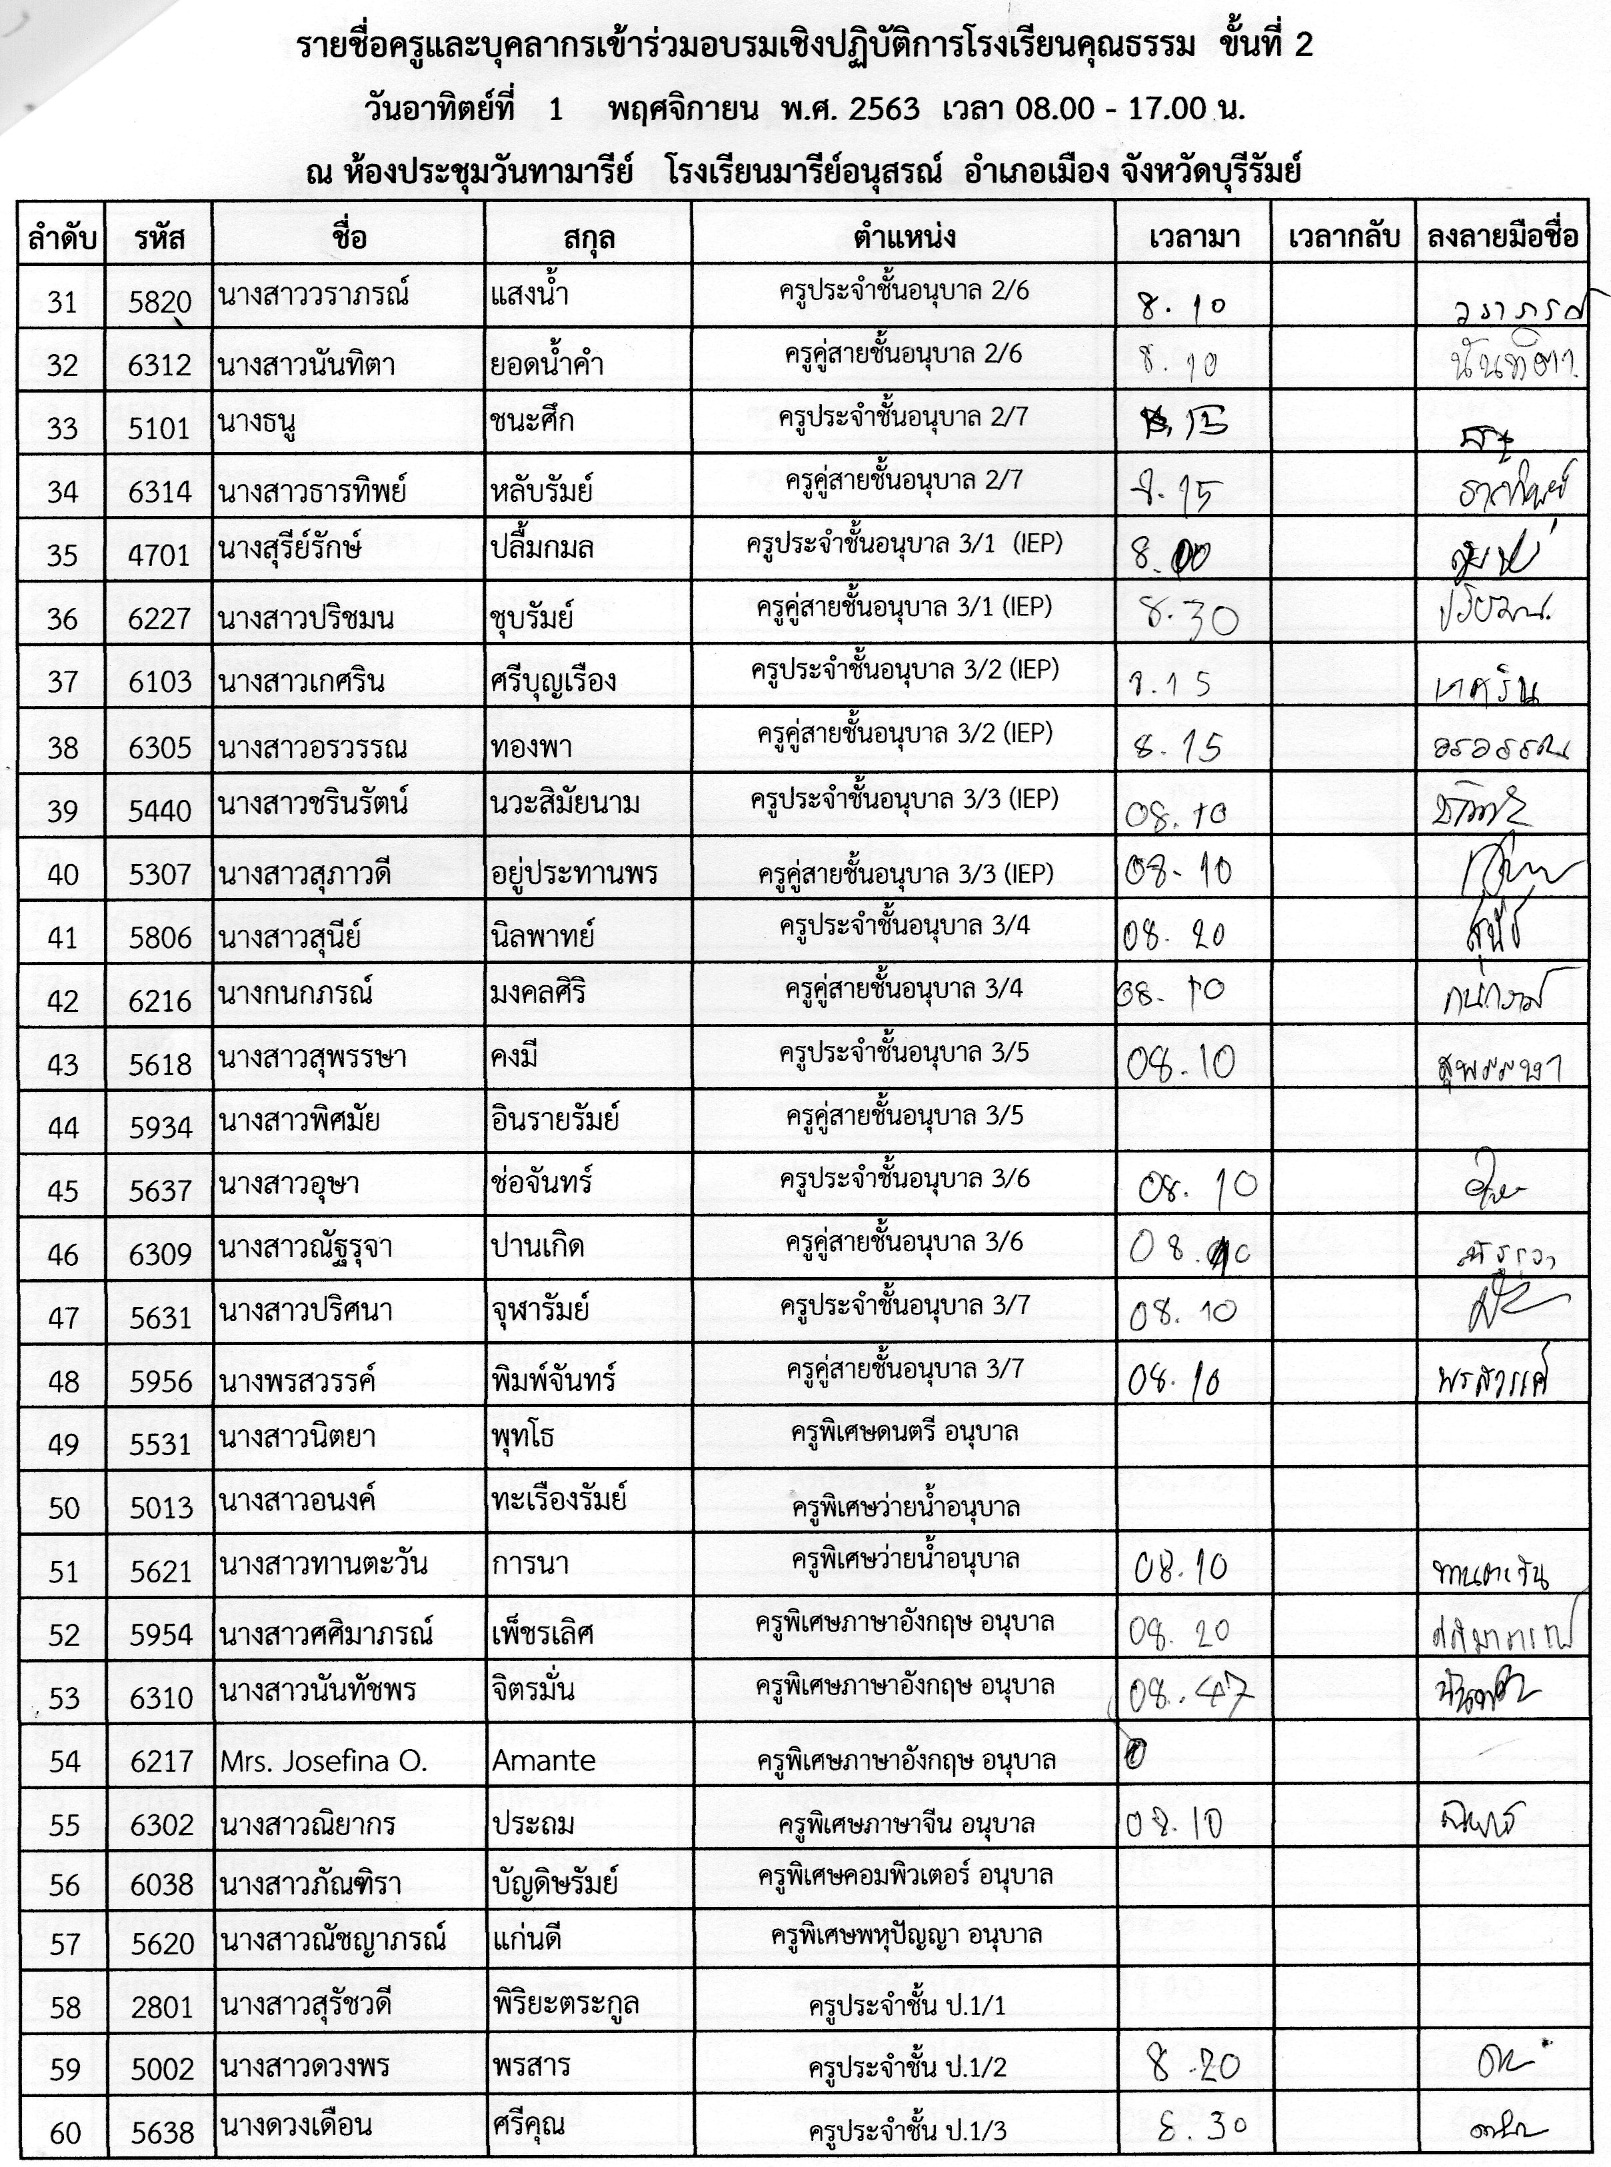 รายชื่อครูและบุคลากรเข้าร่วมอบรมเชิงปฏิบัติการโรงเรียนคุณธรรม ขั้นที่ 2
วันอาทิตย์ที่ 1 พฤศจิกายน พ.ศ. 2563 เวลา 08.00 - 17.00 น.
ณ ห้องประชุมวันทามารีย์ โรงเรียนมารีย์อนุสรณ์ อำเภอเมือง จังหวัดบุรีรัมย์
ลำดับ รหัส ชื่อ สกุล ตำแหน่ง เวลามา เวลากลับ ลงลายมือชื่อ
31 5820 นางสาววราภรณ์ แสงน้ำ ครูประจำชั้นอนุบาล 2/6 8.10 วราภรณ์
32 6312 นางสาวนันทิตา ยอดน้ำคำ ครูคู่สายชั้นอนุบาล 2/6 8.10 นันทิตา
33 5101 นางธนู ชนะศึก ครูประจำชั้นอนุบาล 2/7
34 6314 นางสาวธารทิพย์ หลับรัมย์ ครูคู่สายชั้นอนุบาล 2/7 8.15 ธารทิพย์
35 4701 นางสุรีย์รักษ์ ปลื้มกมล ครูประจำชั้นอนุบาล 3/1 (IEP) 8.00
36 6227 นางสาวปริชมน ชุบรัมย์ ครูคู่สายชั้นอนุบาล 3/1 (IEP) 8.30 ปริชมน
37 6103 นางสาวเกศริน ศรีบุญเรือง ครูประจำชั้นอนุบาล 3/2 (IEP) 8.15 เกศริน
38 6305 นางสาวอรวรรณ ทองพา ครูคู่สายชั้นอนุบาล 3/2 (IEP) 8.15 อรวรรณ
39 5440 นางสาวชรินรัตน์ นวะสิมัยนาม ครูประจำชั้นอนุบาล 3/3 (IEP) 08.10
40 5307 นางสาวสุภาวดี อยู่ประทานพร ครูคู่สายชั้นอนุบาล 3/3 (IEP) 08.10
41 5806 นางสาวสุนีย์ นิลพาทย์ ครูประจำชั้นอนุบาล 3/4 08.20 สุนีย์
42 6216 นางกนกภรณ์ มงคลศิริ ครูคู่สายชั้นอนุบาล 3/4 08.10 กนกภรณ์
43 5618 นางสาวสุพรรษา คงมี ครูประจำชั้นอนุบาล 3/5 08.10 สุพรรษา
44 5934 นางสาวพิศมัย อินรายรัมย์ ครูคู่สายชั้นอนุบาล 3/5
45 5637 นางสาวอุษา ช่อจันทร์ ครูประจำชั้นอนุบาล 3/6 08.10
46 6309 นางสาวณัฐรุจา ปานเกิด ครูคู่สายชั้นอนุบาล 3/6 08.10 ณัฐรุจา
47 5631 นางสาวปริศนา จุฬารัมย์ ครูประจำชั้นอนุบาล 3/7 08.10
48 5956 นางพรสวรรค์ พิมพ์จันทร์ ครูคู่สายชั้นอนุบาล 3/7 08.10 พรสวรรค์
49 5531 นางสาวนิตยา พุทโธ ครูพิเศษดนตรี อนุบาล
50 5013 นางสาวอนงค์ ทะเรืองรัมย์ ครูพิเศษว่ายน้ำอนุบาล
51 5621 นางสาวทานตะวัน การนา ครูพิเศษว่ายน้ำอนุบาล 08.10 ทานตะวัน
52 5954 นางสาวศศิมาภรณ์ เพ็ชรเลิศ ครูพิเศษภาษาอังกฤษ อนุบาล 08.20 ศศิมาภรณ์
53 6310 นางสาวนันทัชพร จิตรมั่น ครูพิเศษภาษาอังกฤษ อนุบาล 08.47
54 6217 Mrs. Josefina O. Amante ครูพิเศษภาษาอังกฤษ อนุบาล
55 6302 นางสาวณิยากร ประถม ครูพิเศษภาษาจีน อนุบาล 08.10
56 6038 นางสาวภัณฑิรา บัญดิษรัมย์ ครูพิเศษคอมพิวเตอร์ อนุบาล
57 5620 นางสาวณัชญาภรณ์ แก่นดี ครูพิเศษพหุปัญญา อนุบาล
58 2801 นางสาวสุรัชวดี พิริยะตระกูล ครูประจำชั้น ป.1/1
59 5002 นางสาวดวงพร พรสาร ครูประจำชั้น ป.1/2 8.20
60 5638 นางดวงเดือน ศรีคุณ ครูประจำชั้น ป.1/3 8.30